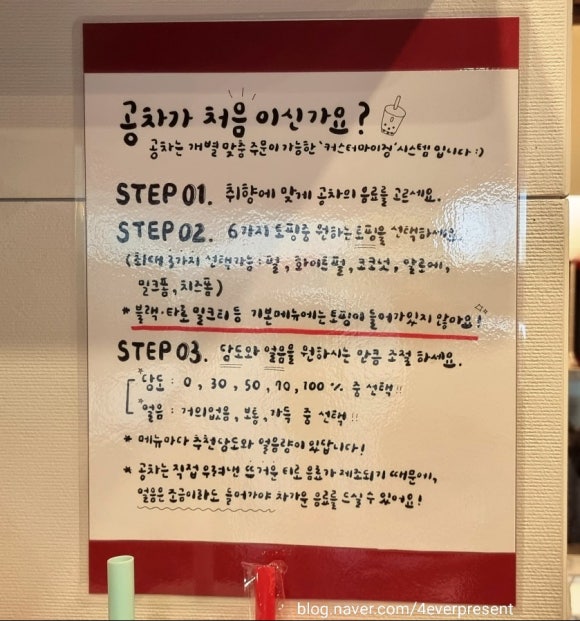 공차가 처음이신가요?
공차는 개별 맞춤 주문이 가능한 '커스터마이징' 시스템 입니다 :)
STEP 01. 취향에 맞게 공차의 음료를 고르세요.
STEP 02. 6가지 토핑중 원하는 토핑을 선택하세요.
(최대 3가지 선택가능 : 펄, 화이트펄, 코코넛, 알로에,
밀크폼, 치즈폼)
* 블랙·타로 밀크티 등 기본메뉴에는 토핑이 들어가있지 않아요!
STEP 03. 당도와 얼음을 원하시는 만큼 조절 하세요.
*당도 : 0, 30, 50, 70, 100 % 중 선택!!
*얼음 : 거의없음, 보통, 가득 중 선택!!
* 메뉴마다 추천당도와 얼음량이 있답니다!
* 공차는 직접 우려낸 뜨거운 티로 음료가 제조되기 때문에,
얼음은 조금이라도 들어가야 차가운 음료를 드실 수 있어요!
blog.naver.com/4everpresent